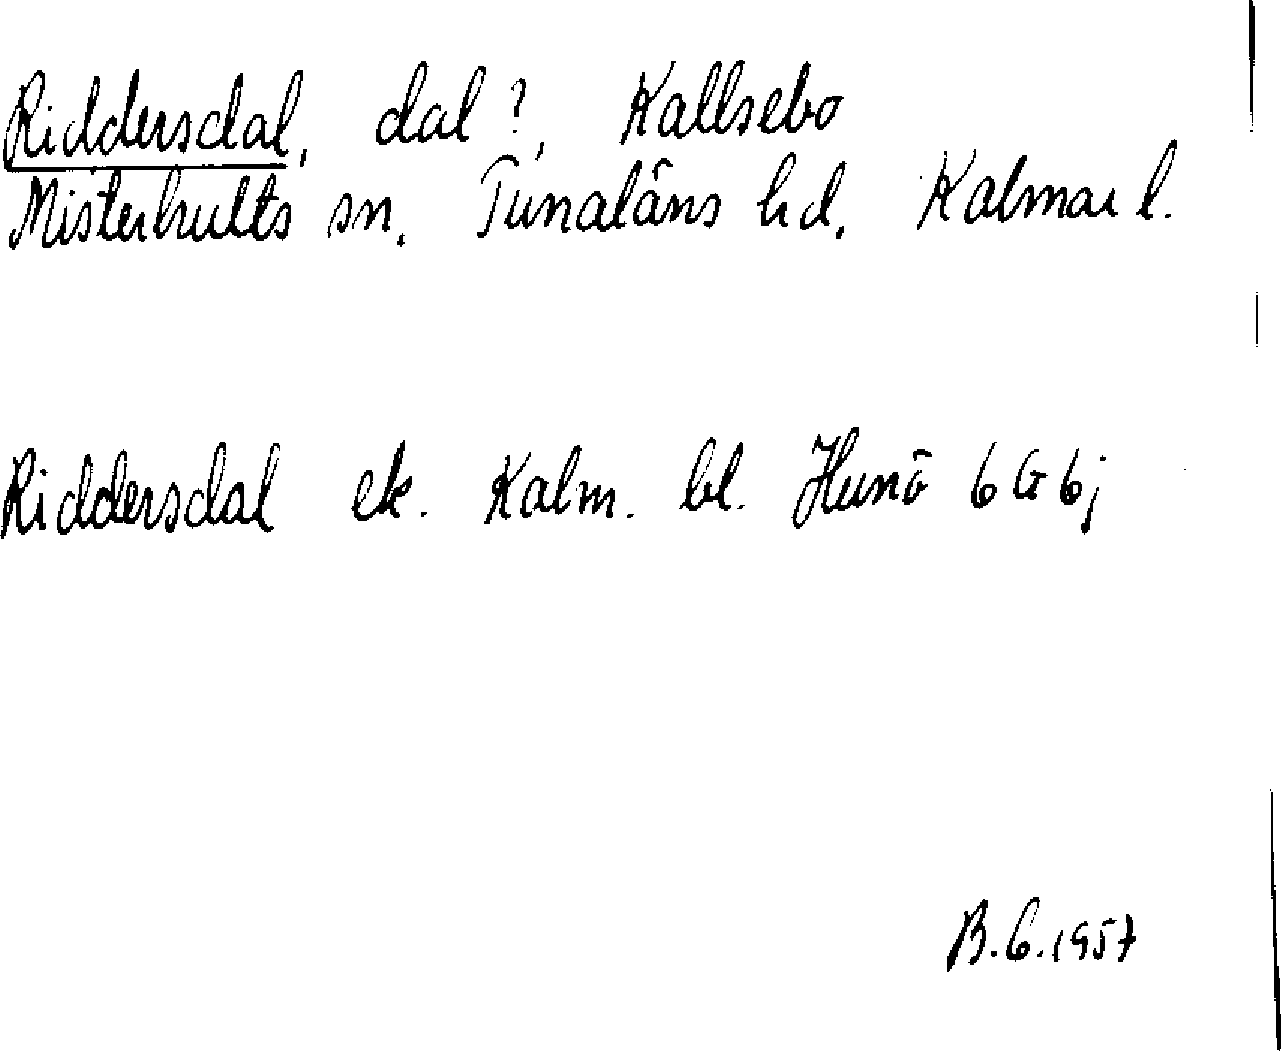 Riddersdal, dal?, Kallsebo
Misterhults sn. Tunaläns hd. Kalmar l.
Riddersdal ek. Kalm. bl. Hunö 6G6j
B.G.1957